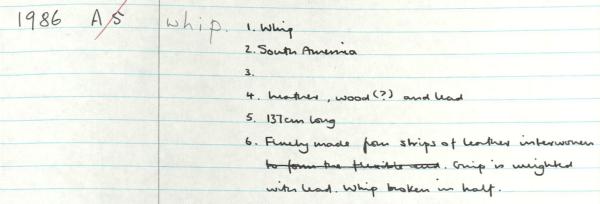 1986 A 5 whip. 1. Whip
2. South America
3.
4. Leather, wood (?) and lead
5. 137cm long
6. Finely made from strips of leather interwoven
to form the flexible end. Grip is weighted
with lead. Whip broken in half.